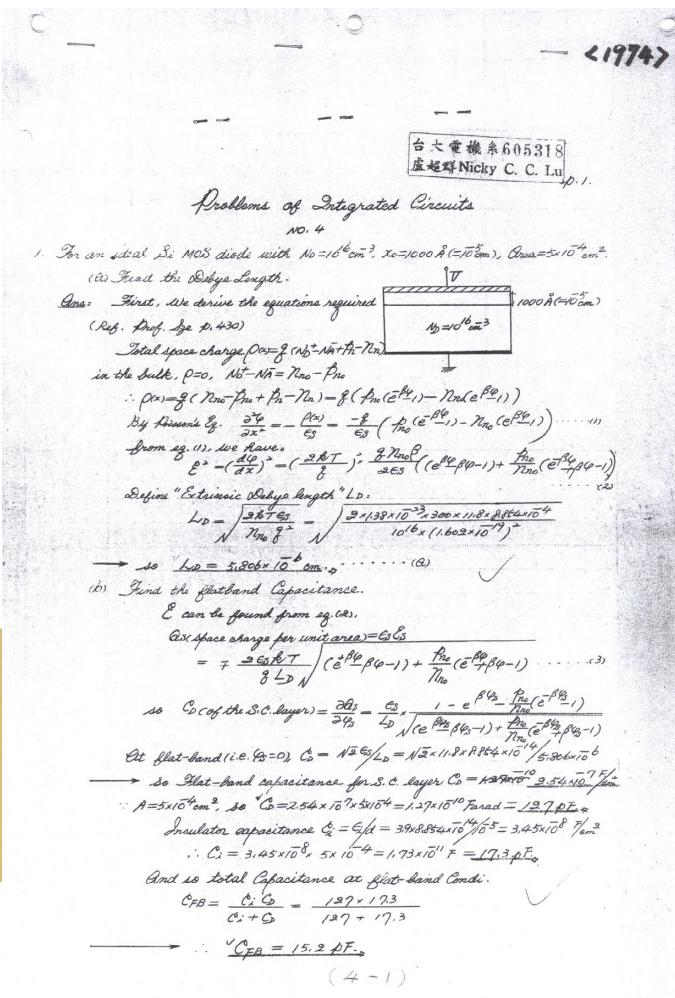 <1974>
台大電機系605318
盧超群 Nicky C. C. Lu
p.1.
Problems of Integrated Circuits
NO. 4
1. For an ideal Si MOS diode with N_D=10^16 cm^-3, x_o=1000 Å (=10^-5 cm), Area=5x10^-4 cm^2.
(a) Find the Debye Length.
V
Ans: First, we derive the equations required
1000 Å (=10^-5 cm)
(Ref. Prof. Sze p.430)
N_D=10^16 cm^-3
Total space charge ρ(x)=q(N_D^+-N_A^-+P_n-n_n)
in the bulk, ρ=0, N_D^+-N_A^-=n_no-P_no
∴ ρ(x)=q(n_no-P_no+P_n-n_n)=q(P_no(e^-βφ-1)-n_no(e^βφ-1))
By Poisson's Eq. ∂²φ/∂x² = -ρ(x)/ε_s = -q/ε_s (P_no(e^-βφ-1)-n_no(e^βφ-1)) ......(1)
from eq.(1), we have.
E² = (dφ/dx)² = (2kT/q)² · q n_no β/2ε_s ((e^βφ-βφ-1)+P_no/n_no(e^-βφ+βφ-1)) ......(2)
Define "Extrinsic Debye length" L_D:
L_D = √(2kTε_s/n_no q²) = √(2x1.38x10^-23x300x11.8x8.854x10^-14/10^16x(1.602x10^-19)²)
→ so L_D = 5.806x10^-6 cm. ......(a)
(b) Find the flatband Capacitance.
E can be found from eq.(2).
Q_s(space charge per unit area)=ε_s E_s
= ∓ 2ε_s kT/q L_D √((e^βφ-βφ-1)+P_no/n_no(e^-βφ+βφ-1)) ......(3)
so C_D (of the S.C. layer) = ∂Q_s/∂φ_s = ε_s/L_D · 1-e^βφ_s-P_no/n_no(e^-βφ_s-1)/√((e^βφ_s-βφ_s-1)+P_no/n_no(e^-βφ_s+βφ_s-1))
At flat-band (i.e. φ_s=0), C_D = √2 ε_s/L_D = √2x11.8x8.854x10^-14/5.806x10^-6
→ so Flat-band capacitance for s.c. layer C_D = 2.54x10^-7 F/cm²
∵ A=5x10^-4 cm², so C_D=2.54x10^-7x5x10^-4=1.27x10^-10 Farad = 127 pF.
Insulator capacitance C_i = ε_i/d = 3.9x8.854x10^-14/10^-5 = 3.45x10^-8 F/cm²
∴ C_i = 3.45x10^-8 x 5x10^-4 = 1.73x10^-11 F = 17.3 pF.
And so total Capacitance at flat-band Condi.
C_FB = C_i C_D/C_i+C_D = 127x17.3/127+17.3
→ ∴ C_FB = 15.2 pF.
(4-1)